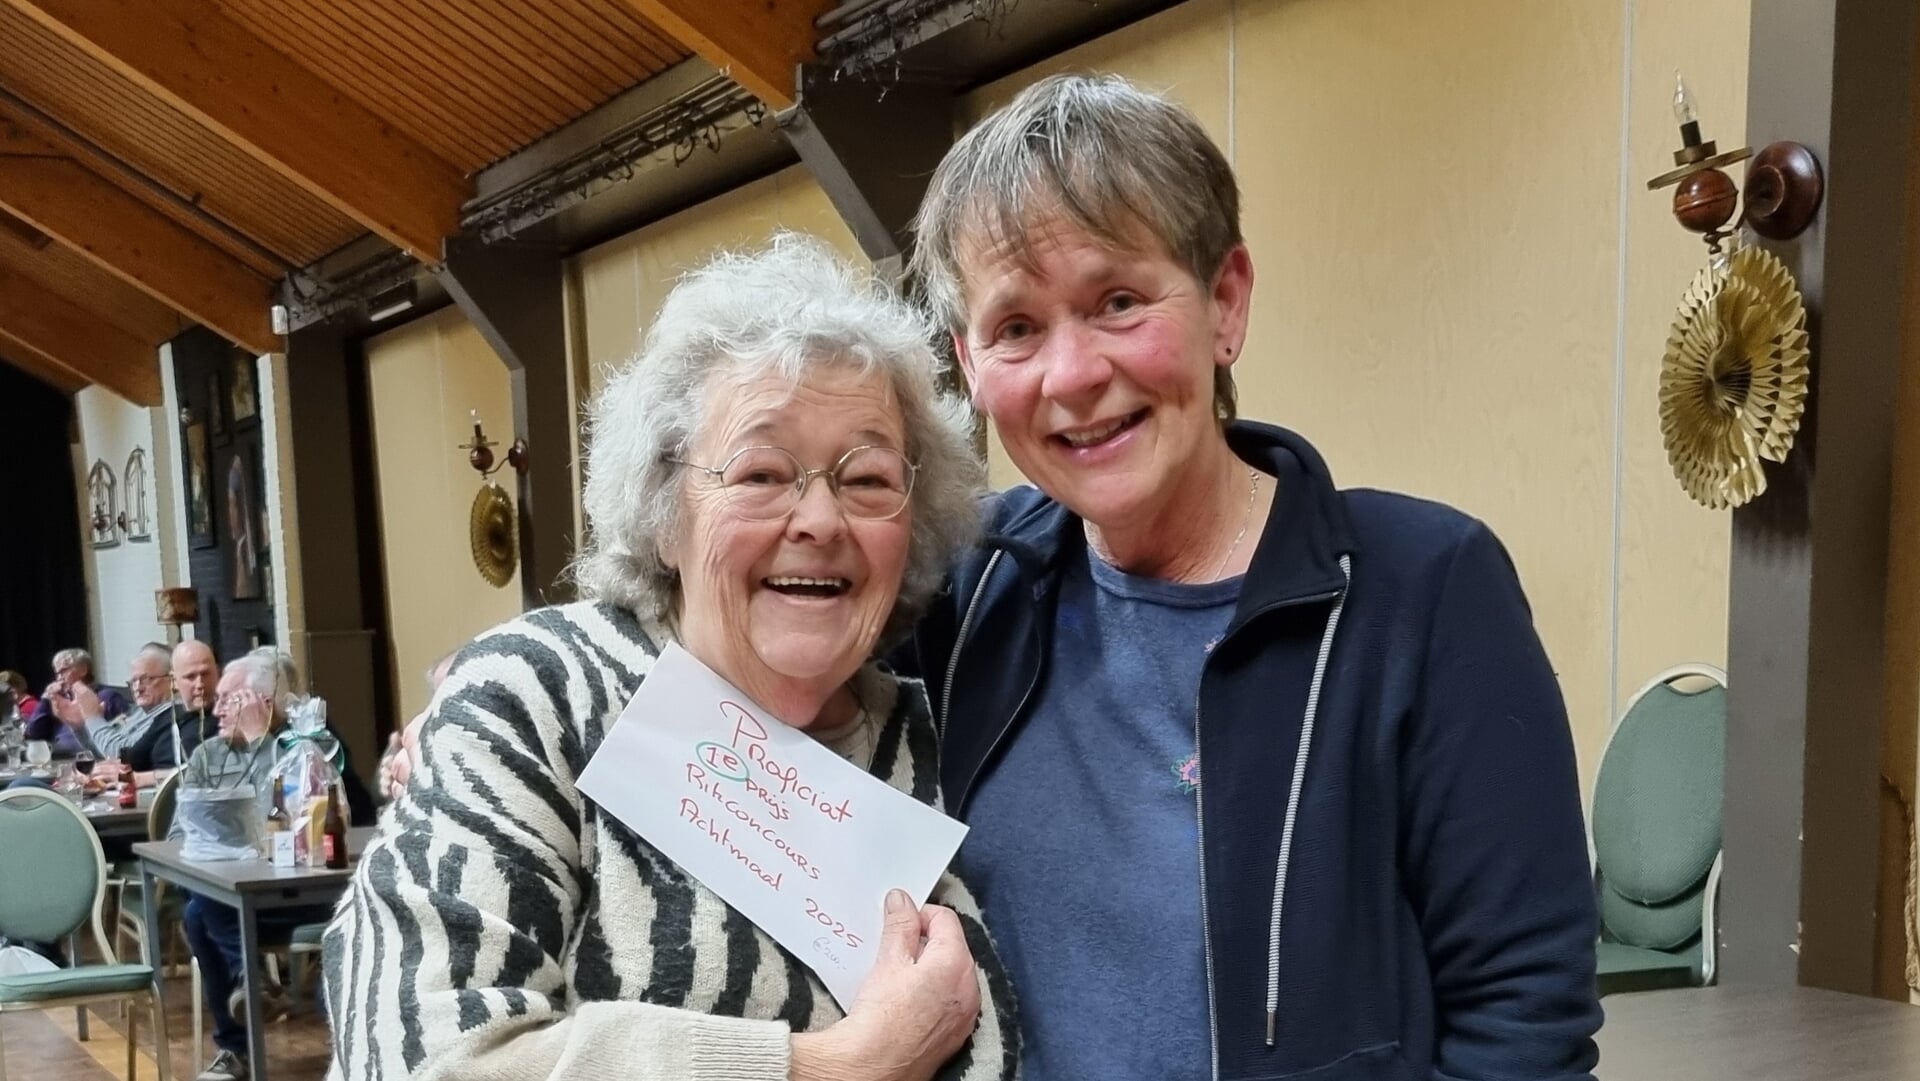 Proficiat
1e prijs
Rikconcours
Achtmaal 2025